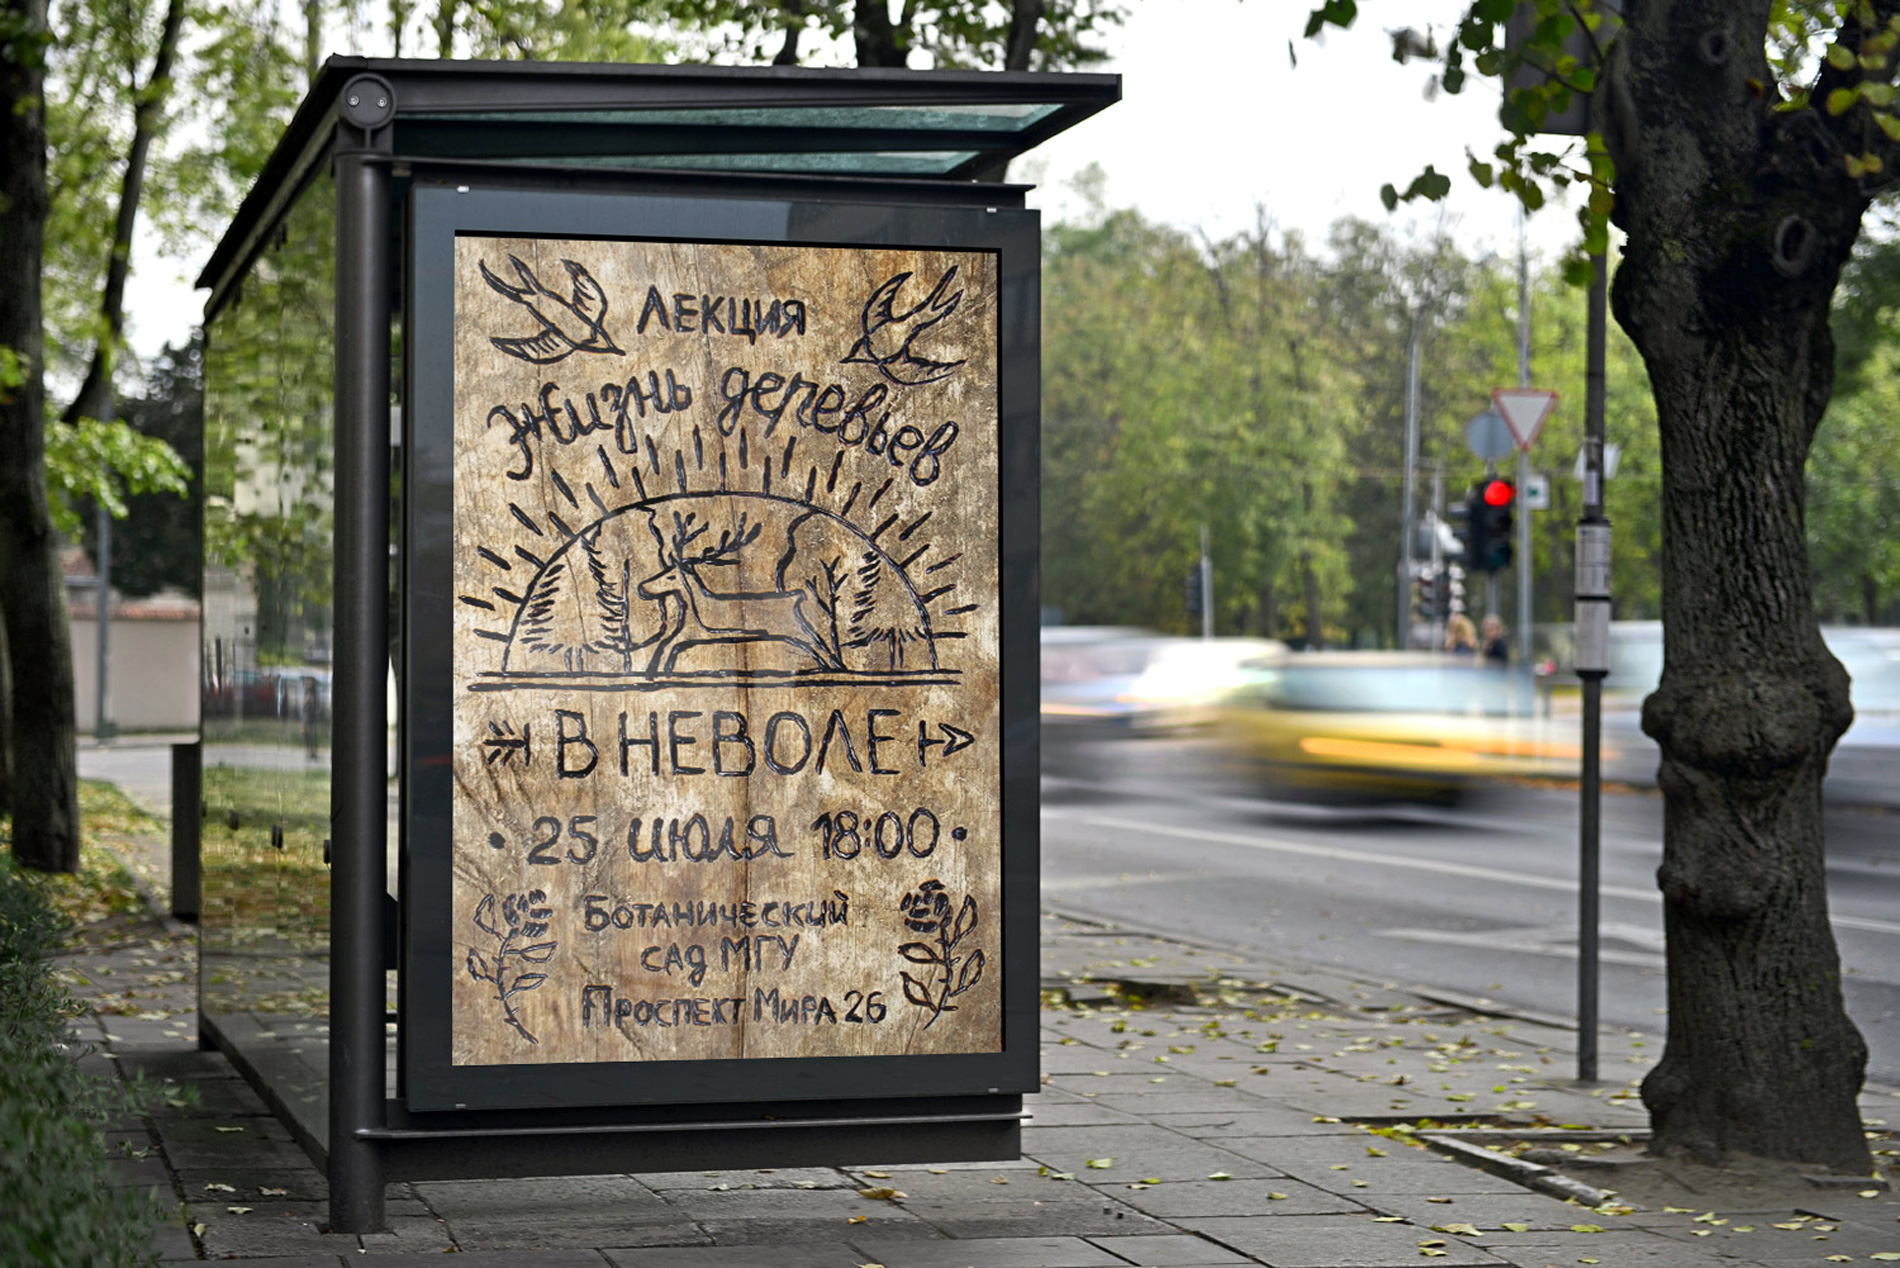 ЛЕКЦИЯ
жизнь деревьев
В НЕВОЛЕ
25 июля 18:00
Ботанический
сад МГУ
Проспект Мира 26